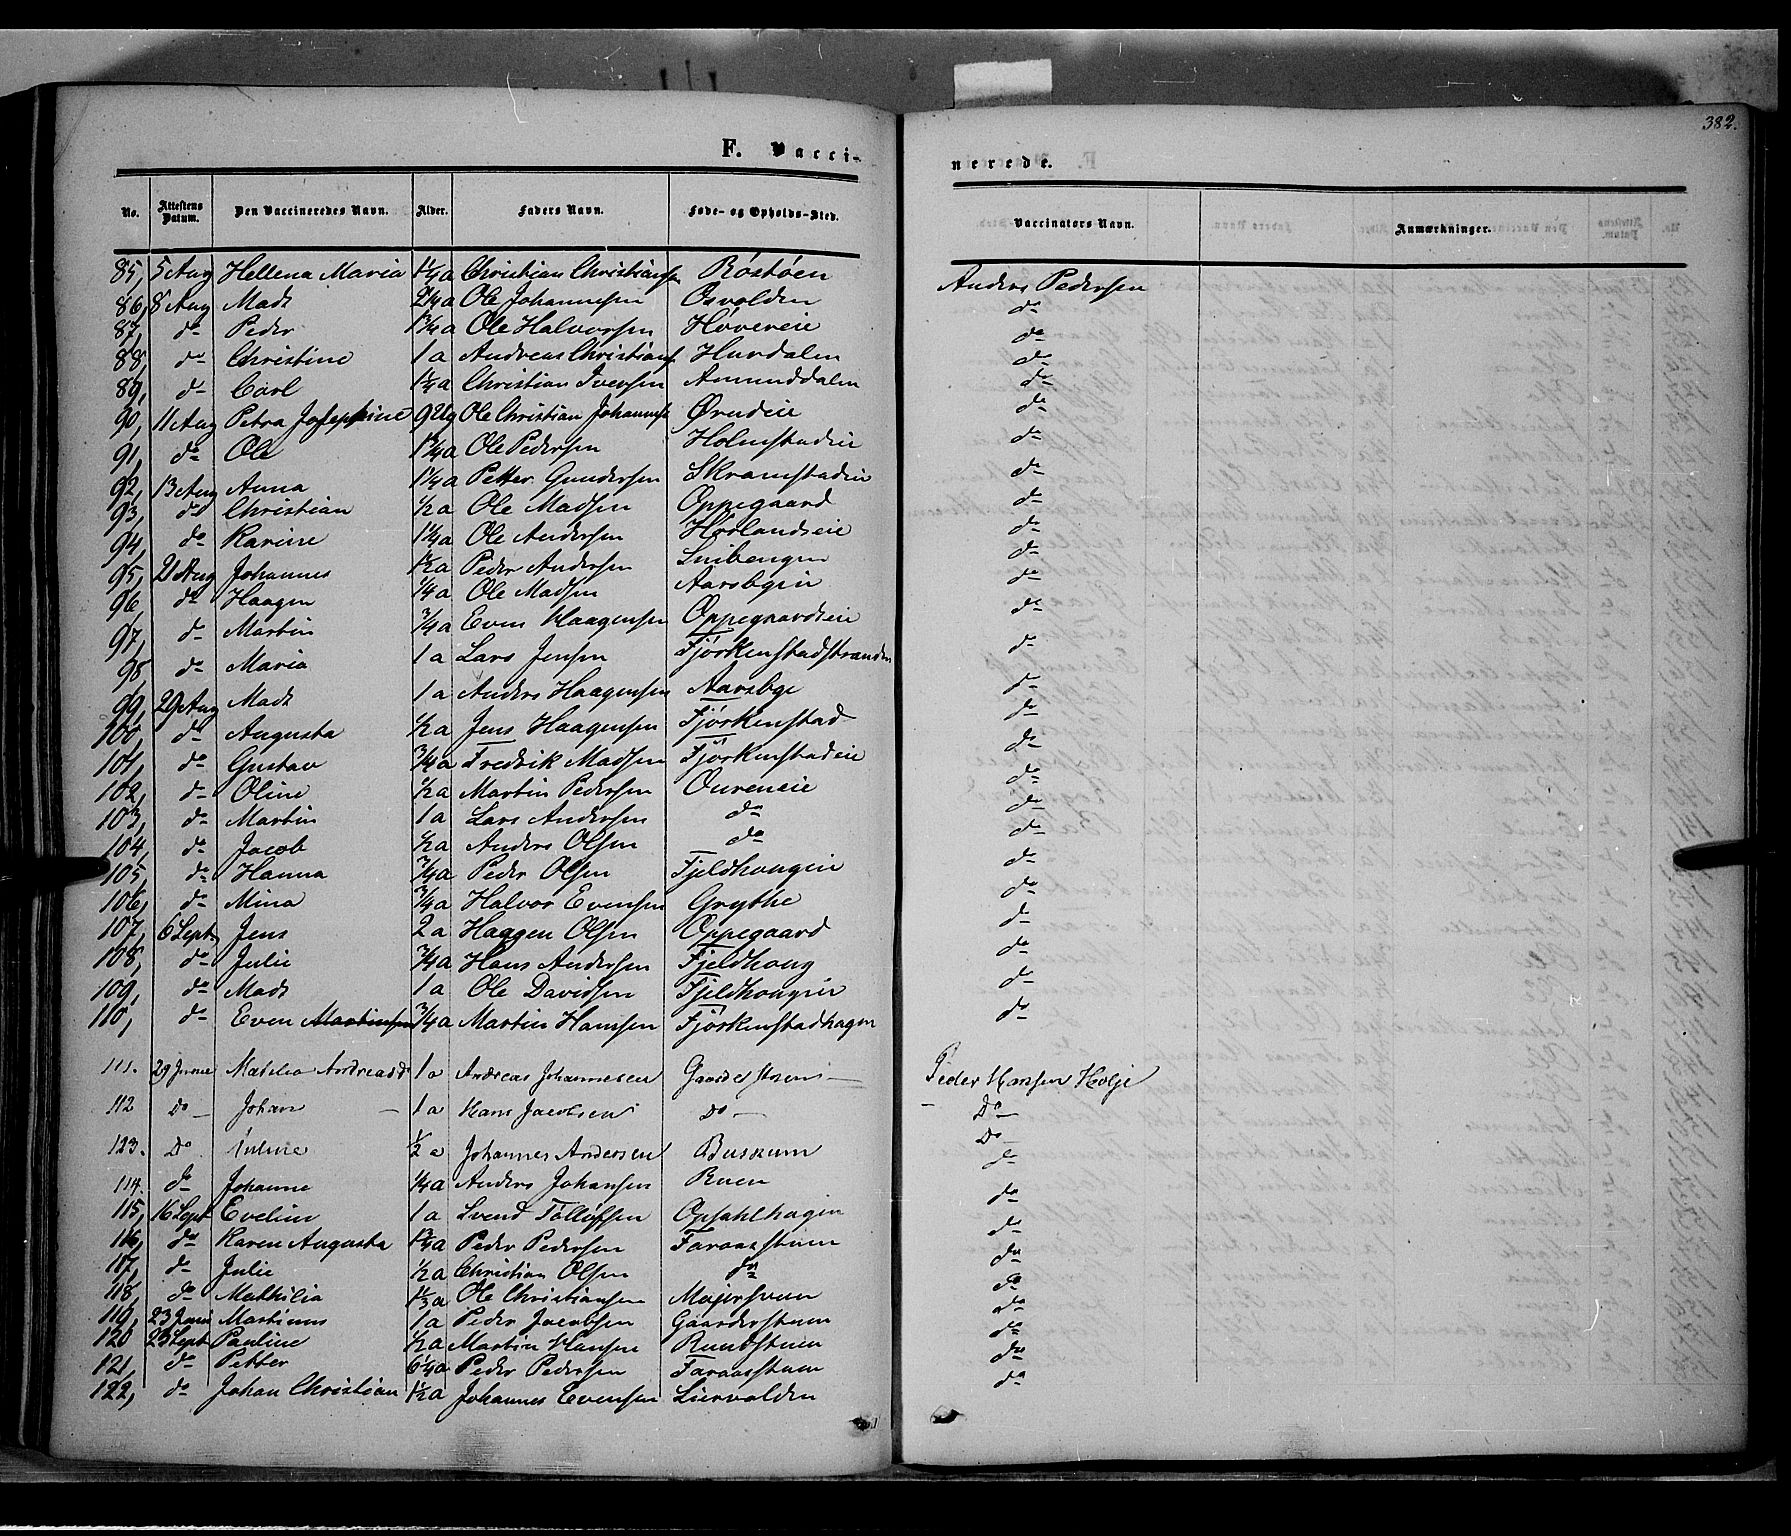 382.
F. Vacci-
nerede.
No. Attestens Datum. Den Vaccineredes Navn. Alder. Faders Navn. Føde- og Opholds-Sted. Vaccinators Navn. Anmærkninger.
85, 5 Aug Hellena Maria 1¼ a Christian Christians Røstøen Anders Pedersen
86, 8 Aug Mads 2¼ a Ole Johannesen Osvolden do
87, do Peder 1¾ a Ole Halvorsen Høvereie do
88, do Christine 1 a Andreas Christians Hurdalen do
89, do Carl 1¼ a Christian Iversen Amunddalen do
90, 11 Aug Petra Josephine 9 Ug Ole Christian Johannes Ørudeie do
91, do Ole 1¾ a Ole Pedersen Holmstadeie do
92, 13 Aug Anna 1¼ a Petter Gundersen Skramstadeie do
93, do Christian ½ a Ole Madsen Oppegaard do
94, do Karine 1¼ a Ole Andersen Hørlandseie do
95, 21 Aug Johannes 1½ a Peder Andersen Snibengen do
96, do Haagen ¼ a Ole Madsen Aarsbgeie do
97, do Martin ¾ a Even Haagensen Oppegaardseie do
98, do Maria 1 a Lars Jensen Fjørkenstadstranden do
99, 29 Aug Mads 1 a Anders Haagensen Aarsbge do
100, do Augusta ½ a Jens Haagensen Fjørkenstad do
101, do Gustav ¾ a Fredrik Madsen Fjørkenstadeie do
102, do Oline ½ a Martin Pedersen Oureneie do
103, do Martin 1 a Lars Andersen do do
104, do Jacob ½ a Anders Olsen do do
105, do Hanna ¾ a Peder Olsen Fjeldhougeie do
106, do Mina ¾ a Halvor Evensen Grythe do
107, 6 Sept. Jens 2 a Haagen Olsen Oppegaard do
108, do Julie ¾ a Hans Andersen Fjeldhoug do
109, do Mads 1 a Ole Davidsen Fjeldhougeie do
110, do Even Martinsen ¾ a Martin Hansen Fjørkenstadhagen do
111. 29 Junie Matelia Andreasd 1 a Andreas Johannesen Peder Hansen Holje
112 Do — Johan — 1 a Hans Jacobsen Do — Do —
123. Do ½ a Johannes Andersen Busrum Do —
114. do Johanne ¼ a Anders Johansen Ruen do
115, 16 Sept Eveline 1 a Svend Tolløfsen Opsahlhagen do
116, do Karen Augusta 1¾ a Peder Pedersen Faraasstuen do
117, do Julie ½ a Christian Olsen do do
118, do Mathilia 1⅓ a Ole Christiansen Majorsveen do
119, 23 Juni Martinus 1 a Peder Jacobsen Gaarderstuen do
120 23 Sept Pauline ½ a Martin Hansen Rundstuen do
121, do Petter 6¼ a Peder Pedersen Faraasstuen do
122, do Johan Christian 1½ a Johannes Evensen Liervolden do